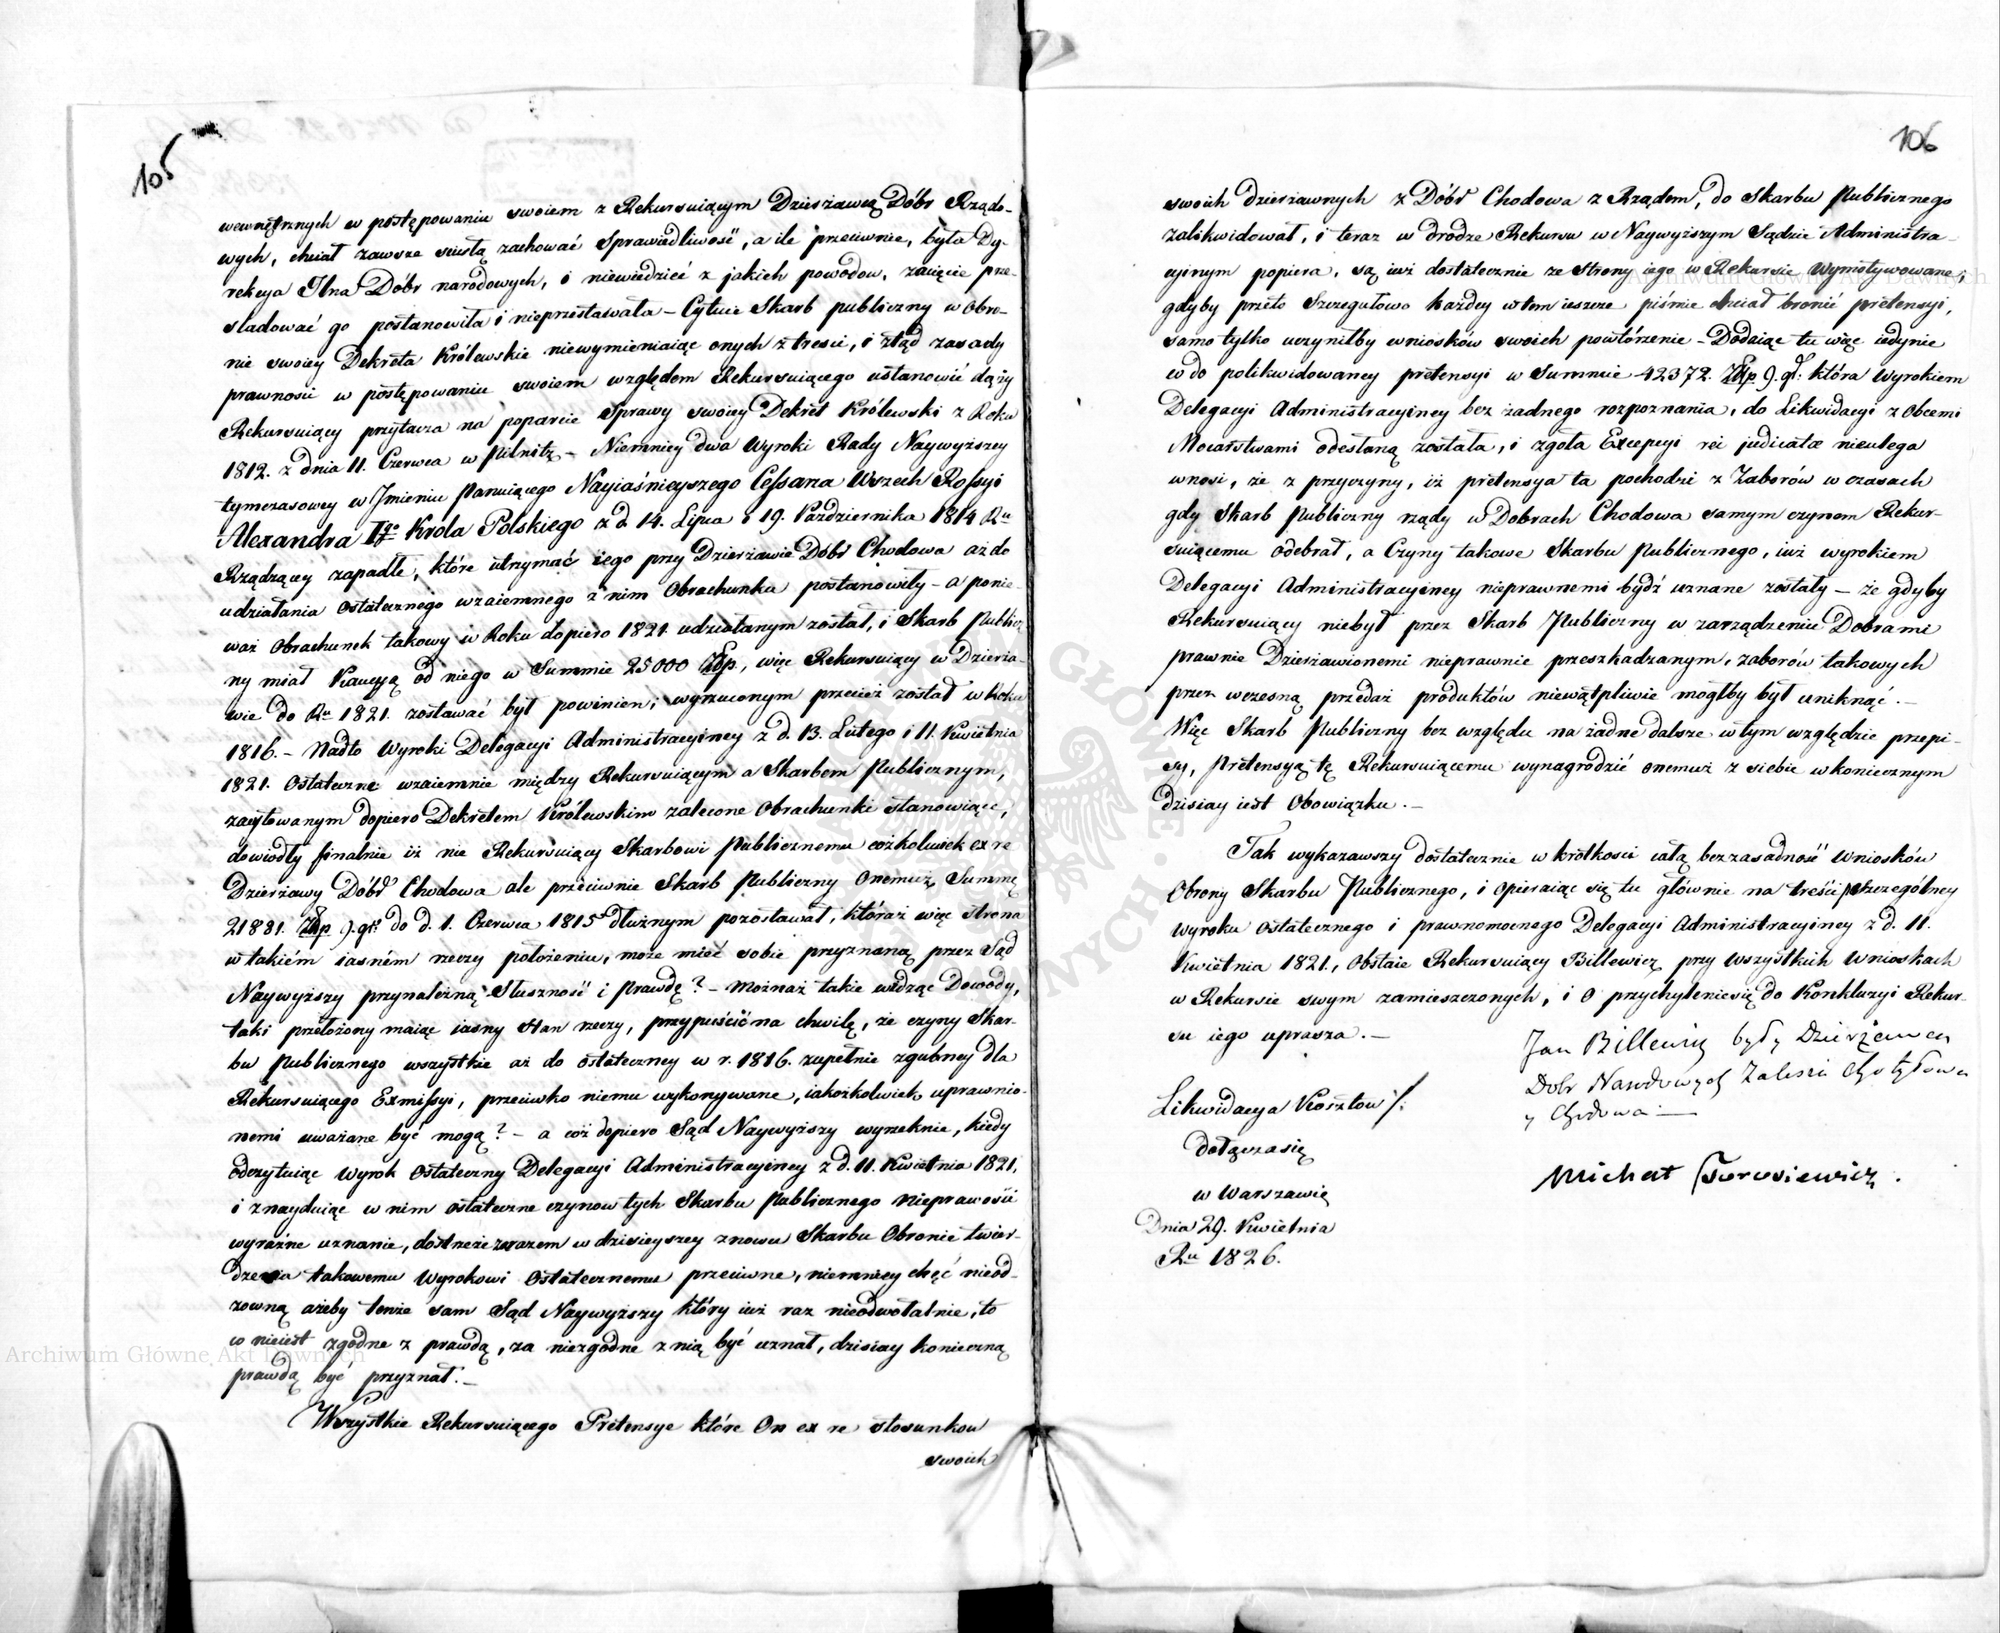 105
wewnętrznych w postępowaniu swoiem z Rekursuiącym Dzierżawcą Dóbr Rządo-
wych, chciał zawsze scisłą zachować Sprawiedliwość, a ile przeciwnie, była Dy-
rekcya Dóbr narodowych, i niewiedzieć z jakich powodow, zacięcie prze-
sladować go postanowiła i nieprzestawała – Cytuie Skarb publiczny w Obro-
nie swoiey Dekreta Królewskie niewymieniaiąc onych z tresci, i ztąd zasady
prawnosci w postępowaniu swoiem względem Rekursuiącego ustanowić dąży
Rekursuiący przytacza na poparcie Sprawy swoiey Dekret Królewski z Roku
1812. z dnia 11. Czerwca w Pilnitz – Niemniey dwa Wyroki Rady Naywyższey
tymczasowey w Jmieniu Panuiącego Nayiaśnieyszego Cessarza Wszech Rossyi
Alexandra Igo Krola Polskiego z d. 14. Lipca i 19. Października 1814 Ru
Rządzący zapadłe, które utrzymać iego przy Dzierżawie Dóbr Chodowa aż do
udziałania Ostatecznego wzaiemnego z nim Obrachunku postanowiły – a ponie-
waż Obrachunek takowy w Roku dopiero 1821. udziałanym został, i Skarb Publicz-
ny miał Kaucyą od niego w Summie 25000 Złp., więc Rekursuiący w Dzierża-
wie do Ru 1821. zostawać był powinien, wyrzuconym przecież został w Roku
1816. – Nadto Wyroki Delegacyi Administracyiney z d. 13. Lutego i 11. Kwietnia
1821. Ostateczne wzaiemnie między Rekursuiącym a Skarbem Publicznym,
zacytowanym dopiero Dekretem Królewskim zalecone Obrachunki stanowiące,
dowiodły finalnie iż nie Rekursuiący Skarbowi Publicznemu cożkolwiek ex re
Dzierżawy Dóbr Chodowa ale przeciwnie Skarb Publiczny Onemuż Summę
21881. Złp 9. gr. do d. 1. Czerwca 1815 dłużnym pozostawał, któraż więc strona
w takiém iasném rzeczy położeniu, może mieć sobie przyznaną przez Sąd
Naywyższy przynależną Słuszność i Prawdę? – Możnaż takie widząc Dowody,
taki przełożony maiąc iasny stan rzeczy, przypuścić na chwilę, że czyny Skar-
bu Publicznego wszystkie aż do ostateczney w r. 1816. zupełnie zgubney dla
Rekursuiącego Exmissyi, przeciwko niemu wykonywane, iakożkolwiek uprawnio-
nemi uważane być mogą? – a cóż dopiero Sąd Naywyższy wyrzeknie, kiedy
odczytuiąc Wyrok Ostateczny Delegacyi Administracyiney z d. 11. Kwietnia 1821,
i znayduiąc w nim ostateczne czynow tych Skarbu Publicznego Nieprawości
wyraźne uznanie, dostrzeże zarazem w dzisieyszey znowu Skarbu Obronie twier-
dzenia takowemu Wyrokowi Ostatecznemu przeciwne, niemniey chęć nieod-
zowną ażeby tenże sam Sąd Naywyższy który iuż raz nieodwołalnie, to
co nieiest zgodne z prawdą, za niezgodne z nią być uznał, dzisiay konieczną
prawdą być przyznał. –
Wszystkie Rekursuiącego Pretensye które On ex re stosunkow
swoich
106
swoich dzierżawnych z Dóbr Chodowa z Rządem, do Skarbu Publicznego
zalikwidował, i teraz w drodze Rekursu w Naywyższym Sądzie Administra-
cyinym popiera, są iuż dostatecznie ze strony iego w Rekursie Wymotywowane,
gdyby przeto Szczegułowo każdey w tem ieszcze piśmie chciał bronić pretensyi,
samo tylko uczyniłby wniosków swoich powtórzenie – Dodaiąc tu więc iedynie
co do polikwidowaney pretensyi w Summie 42372. Złp 9. gr: która Wyrokiem
Delegacyi Administracyiney bez żadnego rozpoznania, do Likwidacyi z Obcemi
Mocarstwami odesłaną została, i zgoła Excepcyi rei judicatæ nieulega
wnosi, że z przyczyny, iż pretensya ta pochodzi z Zaborów w czasach
gdy Skarb Publiczny rządy w Dobrach Chodowa samym czynem Rekur-
suiącemu odebrał, a Czyny takowe Skarbu Publicznego, iuż wyrokiem
Delegacyi Administracyiney nieprawnemi bydź uznane zostały – że gdyby
Rekursuiący niebył przez Skarb Publiczny w zarządzeniu Dobrami
prawnie Dzierżawionemi nieprawnie przeszkadzanym, zaborów takowych
przez wczesną przedaż produktów niewątpliwie mógłby był uniknąć. –
Więc Skarb Publiczny bez względu na żadne dalsze w tym względzie przepi-
sy, Pretensyą tę Rekursuiącemu wynagrodzić onemuż z siebie w koniecznym
dzisiay iest Obowiązku. –
Tak wykazawszy dostatecznie w krótkosci całą bezzasadność Wniosków
Obrony Skarbu Publicznego, i opieraiąc się tu głównie na treści szczególney
Wyroku Ostatecznego i prawomocnego Delegacyi Administracyiney z d. 11.
Kwietnia 1821., Obstaie Rekursuiący Billewicz przy Wszystkich Wnioskach
w Rekursie swym zamieszczonych, i o przychylenie się do Konkluzyi Rekur-
su iego uprasza. –
Jan Billewicz były Dzierżawca
Dobr Narodowych Zalesia Chotyłowa
y Chodowa –
Likwidacya Kosztow /:
dołącza się
Michał Torosiewicz.
w Warszawie
Dnia 29. Kwietnia
Ru 1826.
Archiwum Główne Akt Dawnych
Archiwum Główne Akt Dawnych